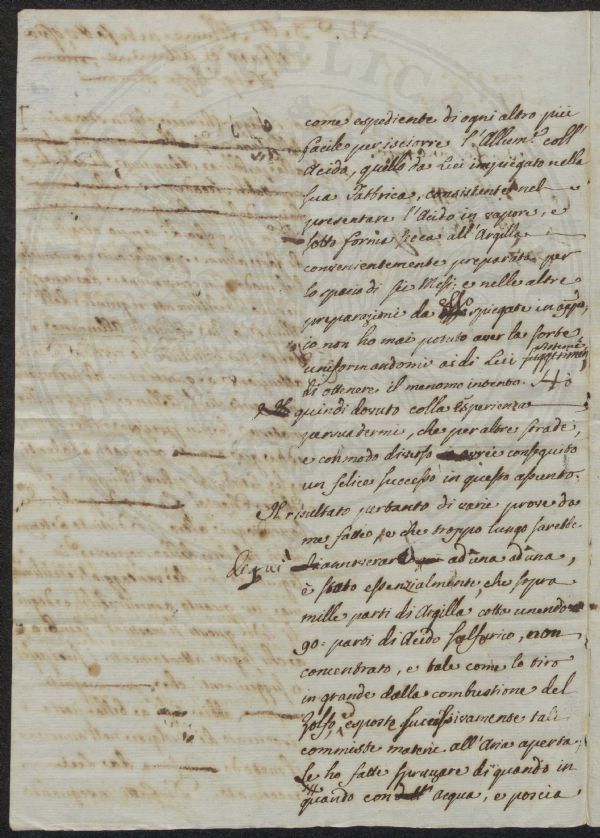 come espediente di ogni altro più
facile per isciorre l'Allum.e coll'
Acido, quello da Lui impiegato nella
sua Fabbrica, consistente nel
presentare l'Acido in vapore, e
sotto forma secca all'Argilla
convenientemente preparata per
lo spazio di sei Mesi: e nelle altre
preparazioni da Esso spiegate in
io non ho mai potuto aver la sorte
uniformandomi ai di Lui
di ottenere il menomo intento. Ho
quindi dovuto colla Esperienza
persuadermi, che per altre strade,
e con modo diverso avrei conseguito
un felice successo in questo assunto.
Il risultato pertanto di varie prove da
me fatte, e che troppo lungo sarebbe
di qui annoverare ad una ad una,
è stato essenzialmente, che sopra
mille parti di Argilla cotta unendo
90. parti di Acido Solforico, non
concentrato, e tale come lo tiro
in grande dalla combustione del
Zolfo, esposte successivamente tali
commiste materie all'Aria aperta.
Le ho fatte spruzzare di quando in
quando con Acqua, e poscia